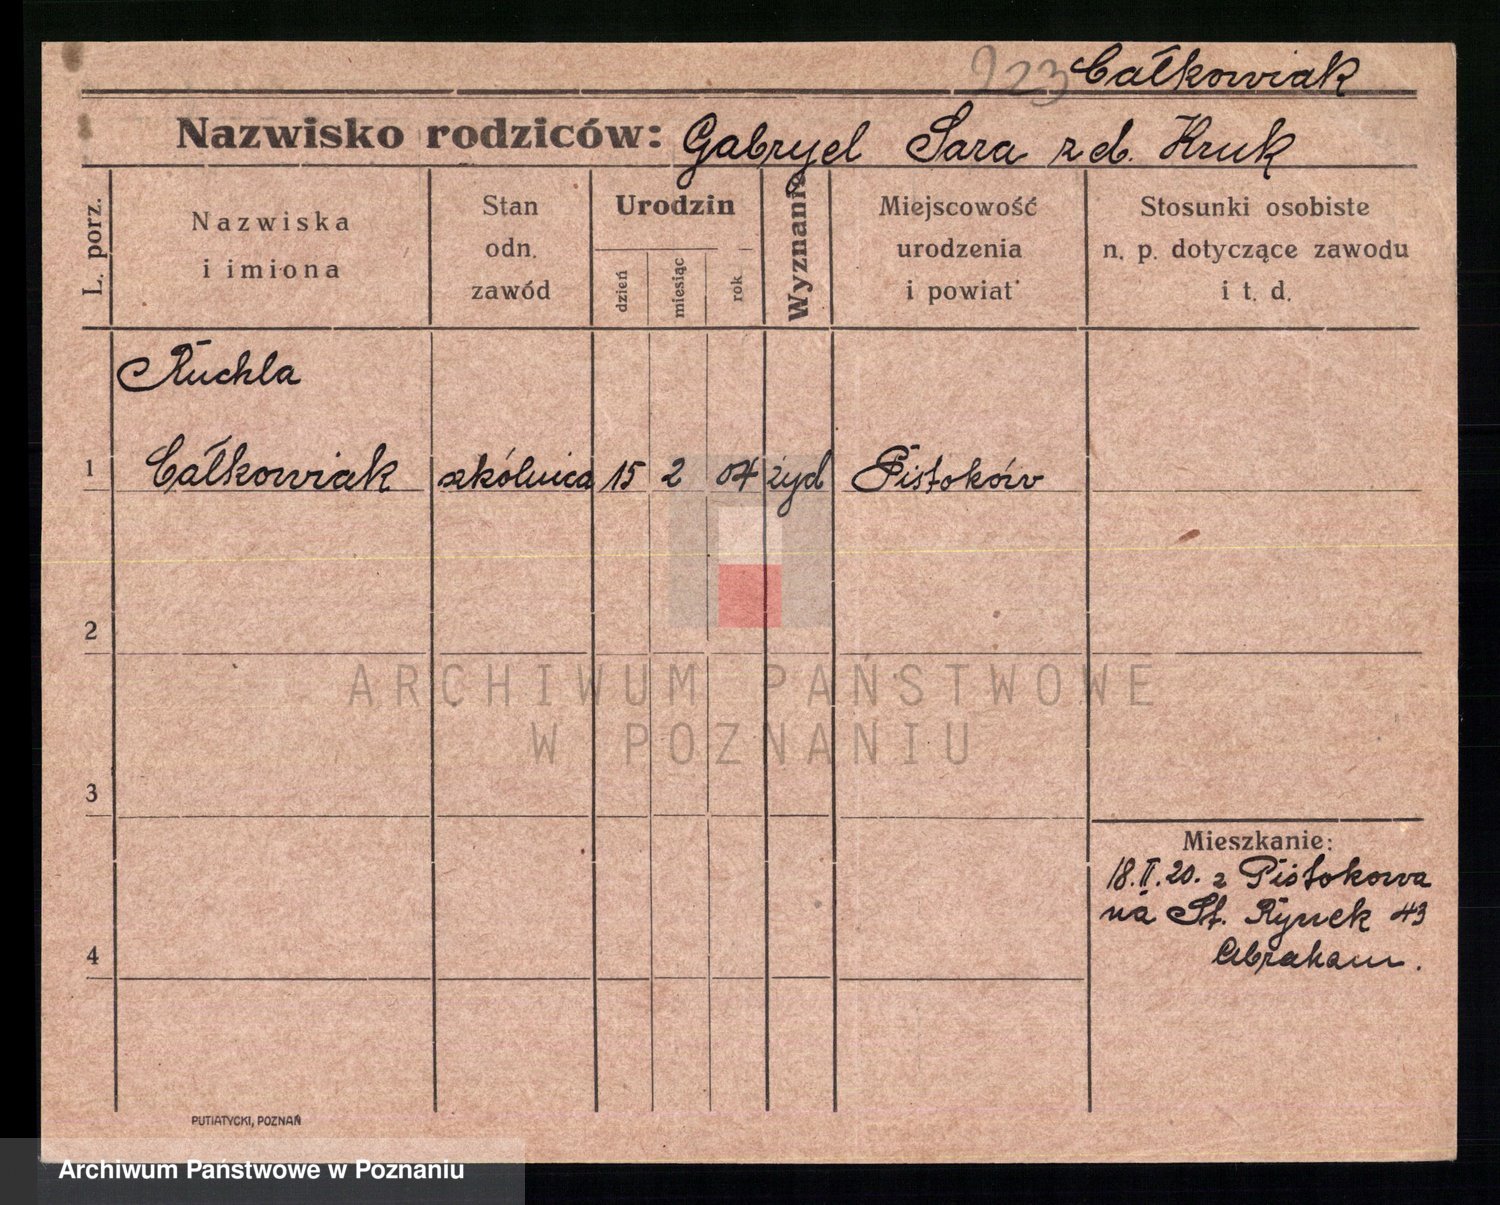 223 Całkowiak
Nazwisko rodziców: Gabryel Sara z d. Hruk
L. porz.
Nazwiska
i imiona
Stan
odn.
zawód
Urodzin
dzień
miesiąc
rok
Wyznanie
Miejscowość
urodzenia
i powiat
Stosunki osobiste
n. p. dotyczące zawodu
i t. d.
Ruchla
1 Całkowiak szkólnica 15 2 04 żyd Pistoków
2
3
4
ARCHIWUM PAŃSTWOWE
W POZNANIU
Mieszkanie:
18.II.20. z Pistokowa
na St. Rynek 43
Abraham.
PUTIATYCKI, POZNAŃ
Archiwum Państwowe w Poznaniu